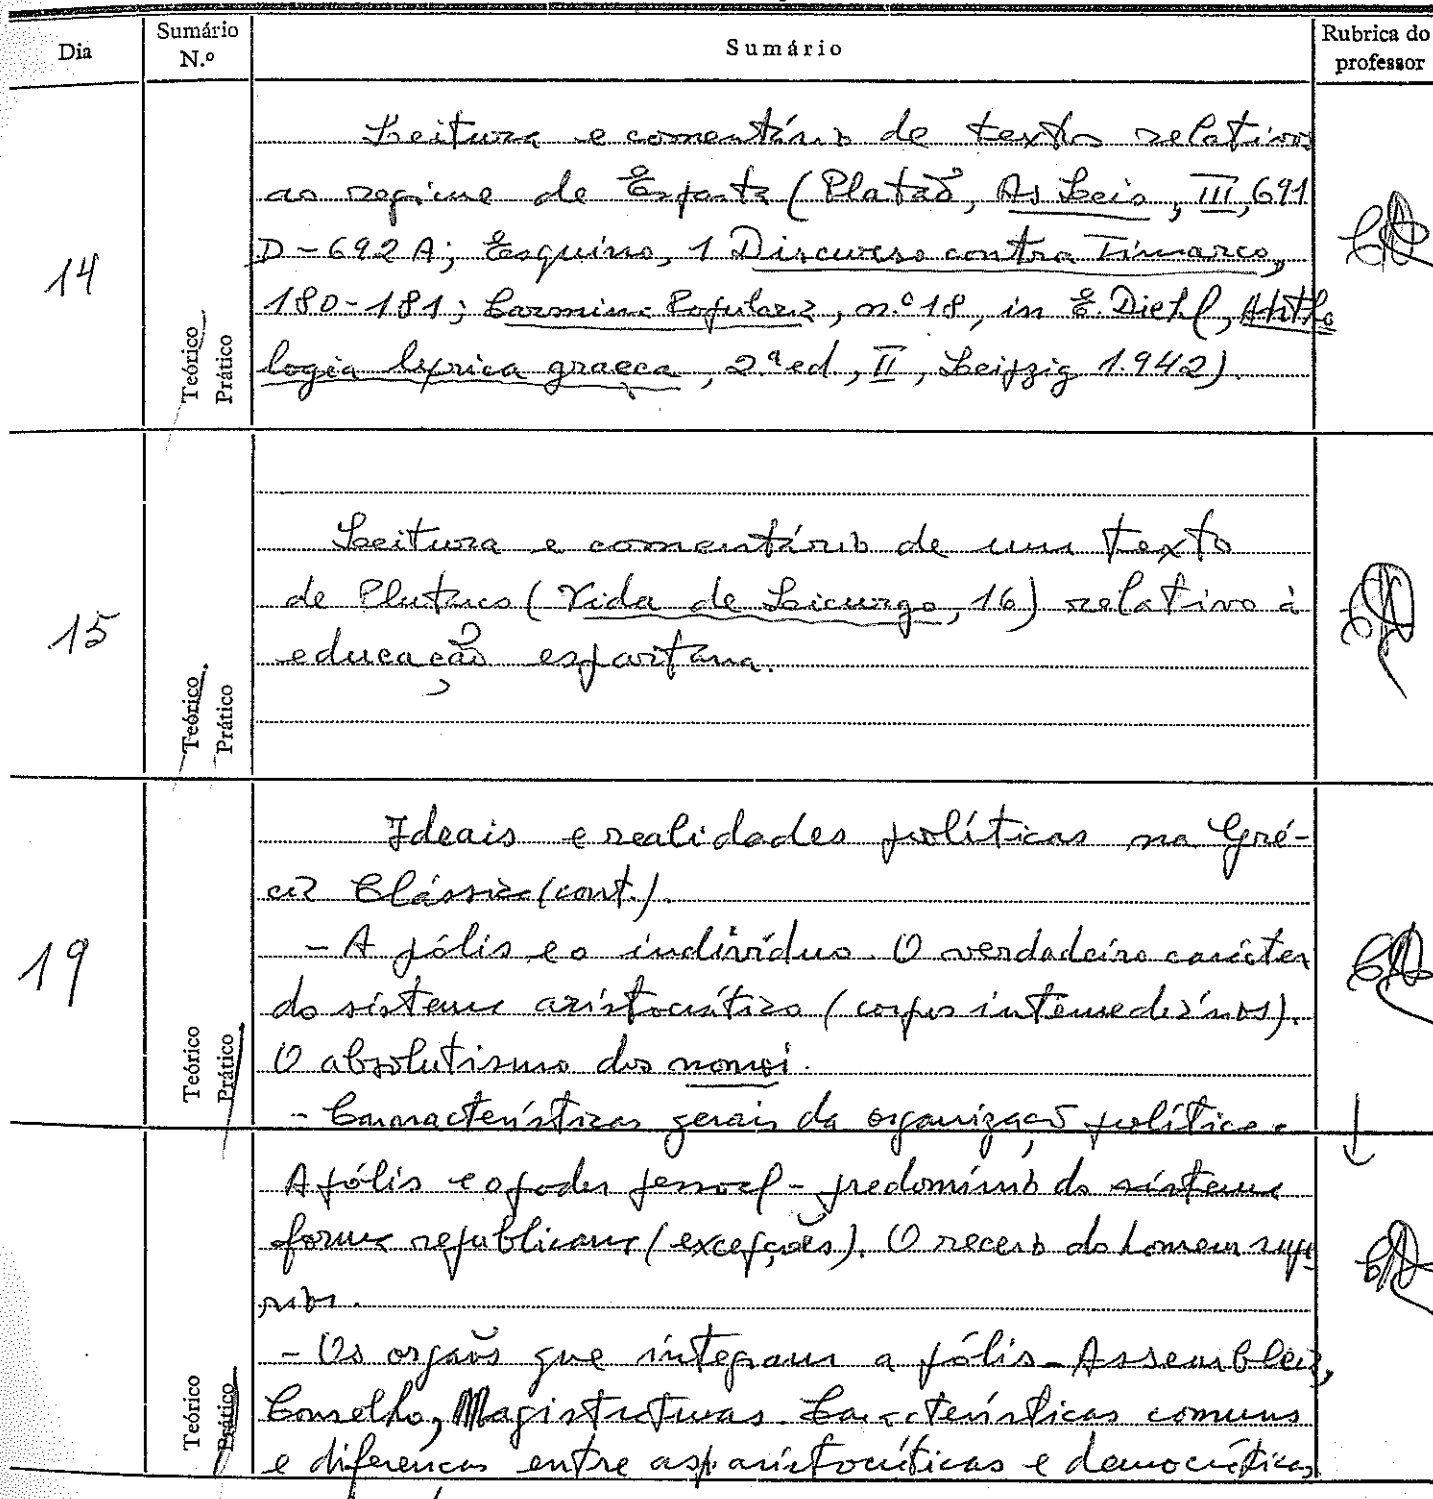 Dia
Sumário N.º
Sumário
Rubrica do professor
14
Teórico
Prático
Leitura e comentário de textos relativos
ao regime de Esparta (Platão, As Leis, III, 691
D-692 A; Esquines, 1 Discurso contra Timarco,
180-181; Carmina Popularia, n.º 18, in E. Diehl, Antho
logia lyrica graeca, 2.ª ed, II, Leipzig 1.942).
15
Teórico
Prático
Leitura e comentário de um texto
de Plutarco (Vida de Licurgo, 16) relativo à
educação espartana.
19
Teórico
Prático
Ideais e realidades políticas na Gré-
cia Clássica (cont.).
- A pólis e o indivíduo. O verdadeiro carácter
do sistema aristocrático (corpos intermediários).
O absolutismo dos nomoi.
- Características gerais da organização política.
Teórico
Prático
A pólis e o poder pessoal - predomínio do sistema
forma republicana (excepções). O receio do homem supe
rior.
- Os orgãos que integram a pólis - Assembleia,
Conselho, Magistraturas. Características comuns
e diferenças entre as p. aristocráticas e democráticas